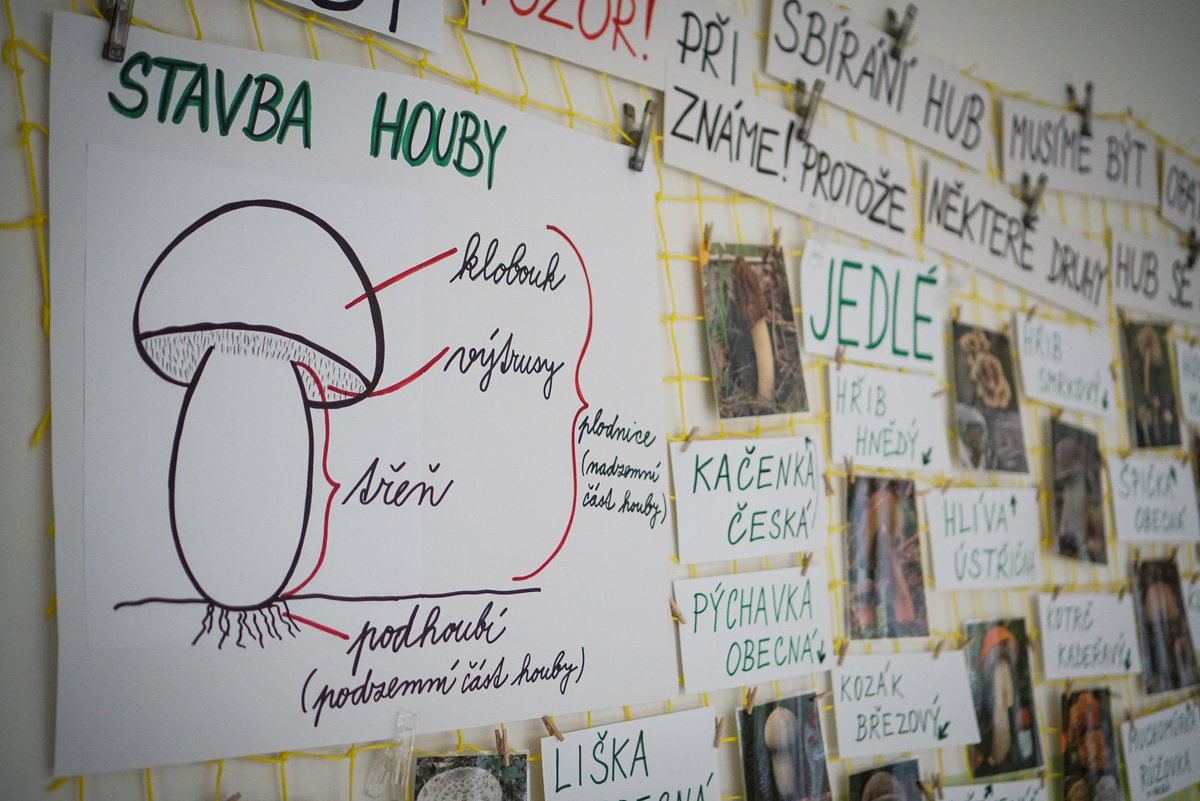 STAVBA HOUBY
klobouk
výtrusy
plodnice
(nadzemní
část houby)
třeň
podhoubí
(podzemní část houby)
POZOR!
PŘI
SBÍRÁNÍ HUB
MUSÍME BÝT
ZNÁME!
PROTOŽE
NĚKTERÉ DRUHY
HUB SE
JEDLÉ
HŘIB
HNĚDÝ
HŘIB
SMRKOVÝ
KAČENKA
ČESKÁ
HLÍVA
ÚSTŘIČNÁ
ŠPIČKA
OBECNÁ
PÝCHAVKA
OBECNÁ
KOTRČ
KADEŘAVÝ
KOZÁK
BŘEZOVÝ
LIŠKA
MUCHOMŮRKA
RŮŽOVKA